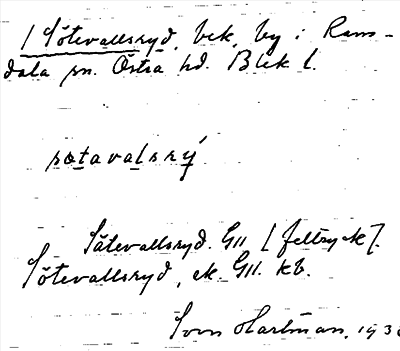 / Sötevallsryd, bek, by i Rams-
dala sn. Östra hd. Blek l.
sɶtavalsrý
Sätevallsryd. GII [feltryck].
Sötevallsryd, ek. GII. kb.
Sven Hartman, 193